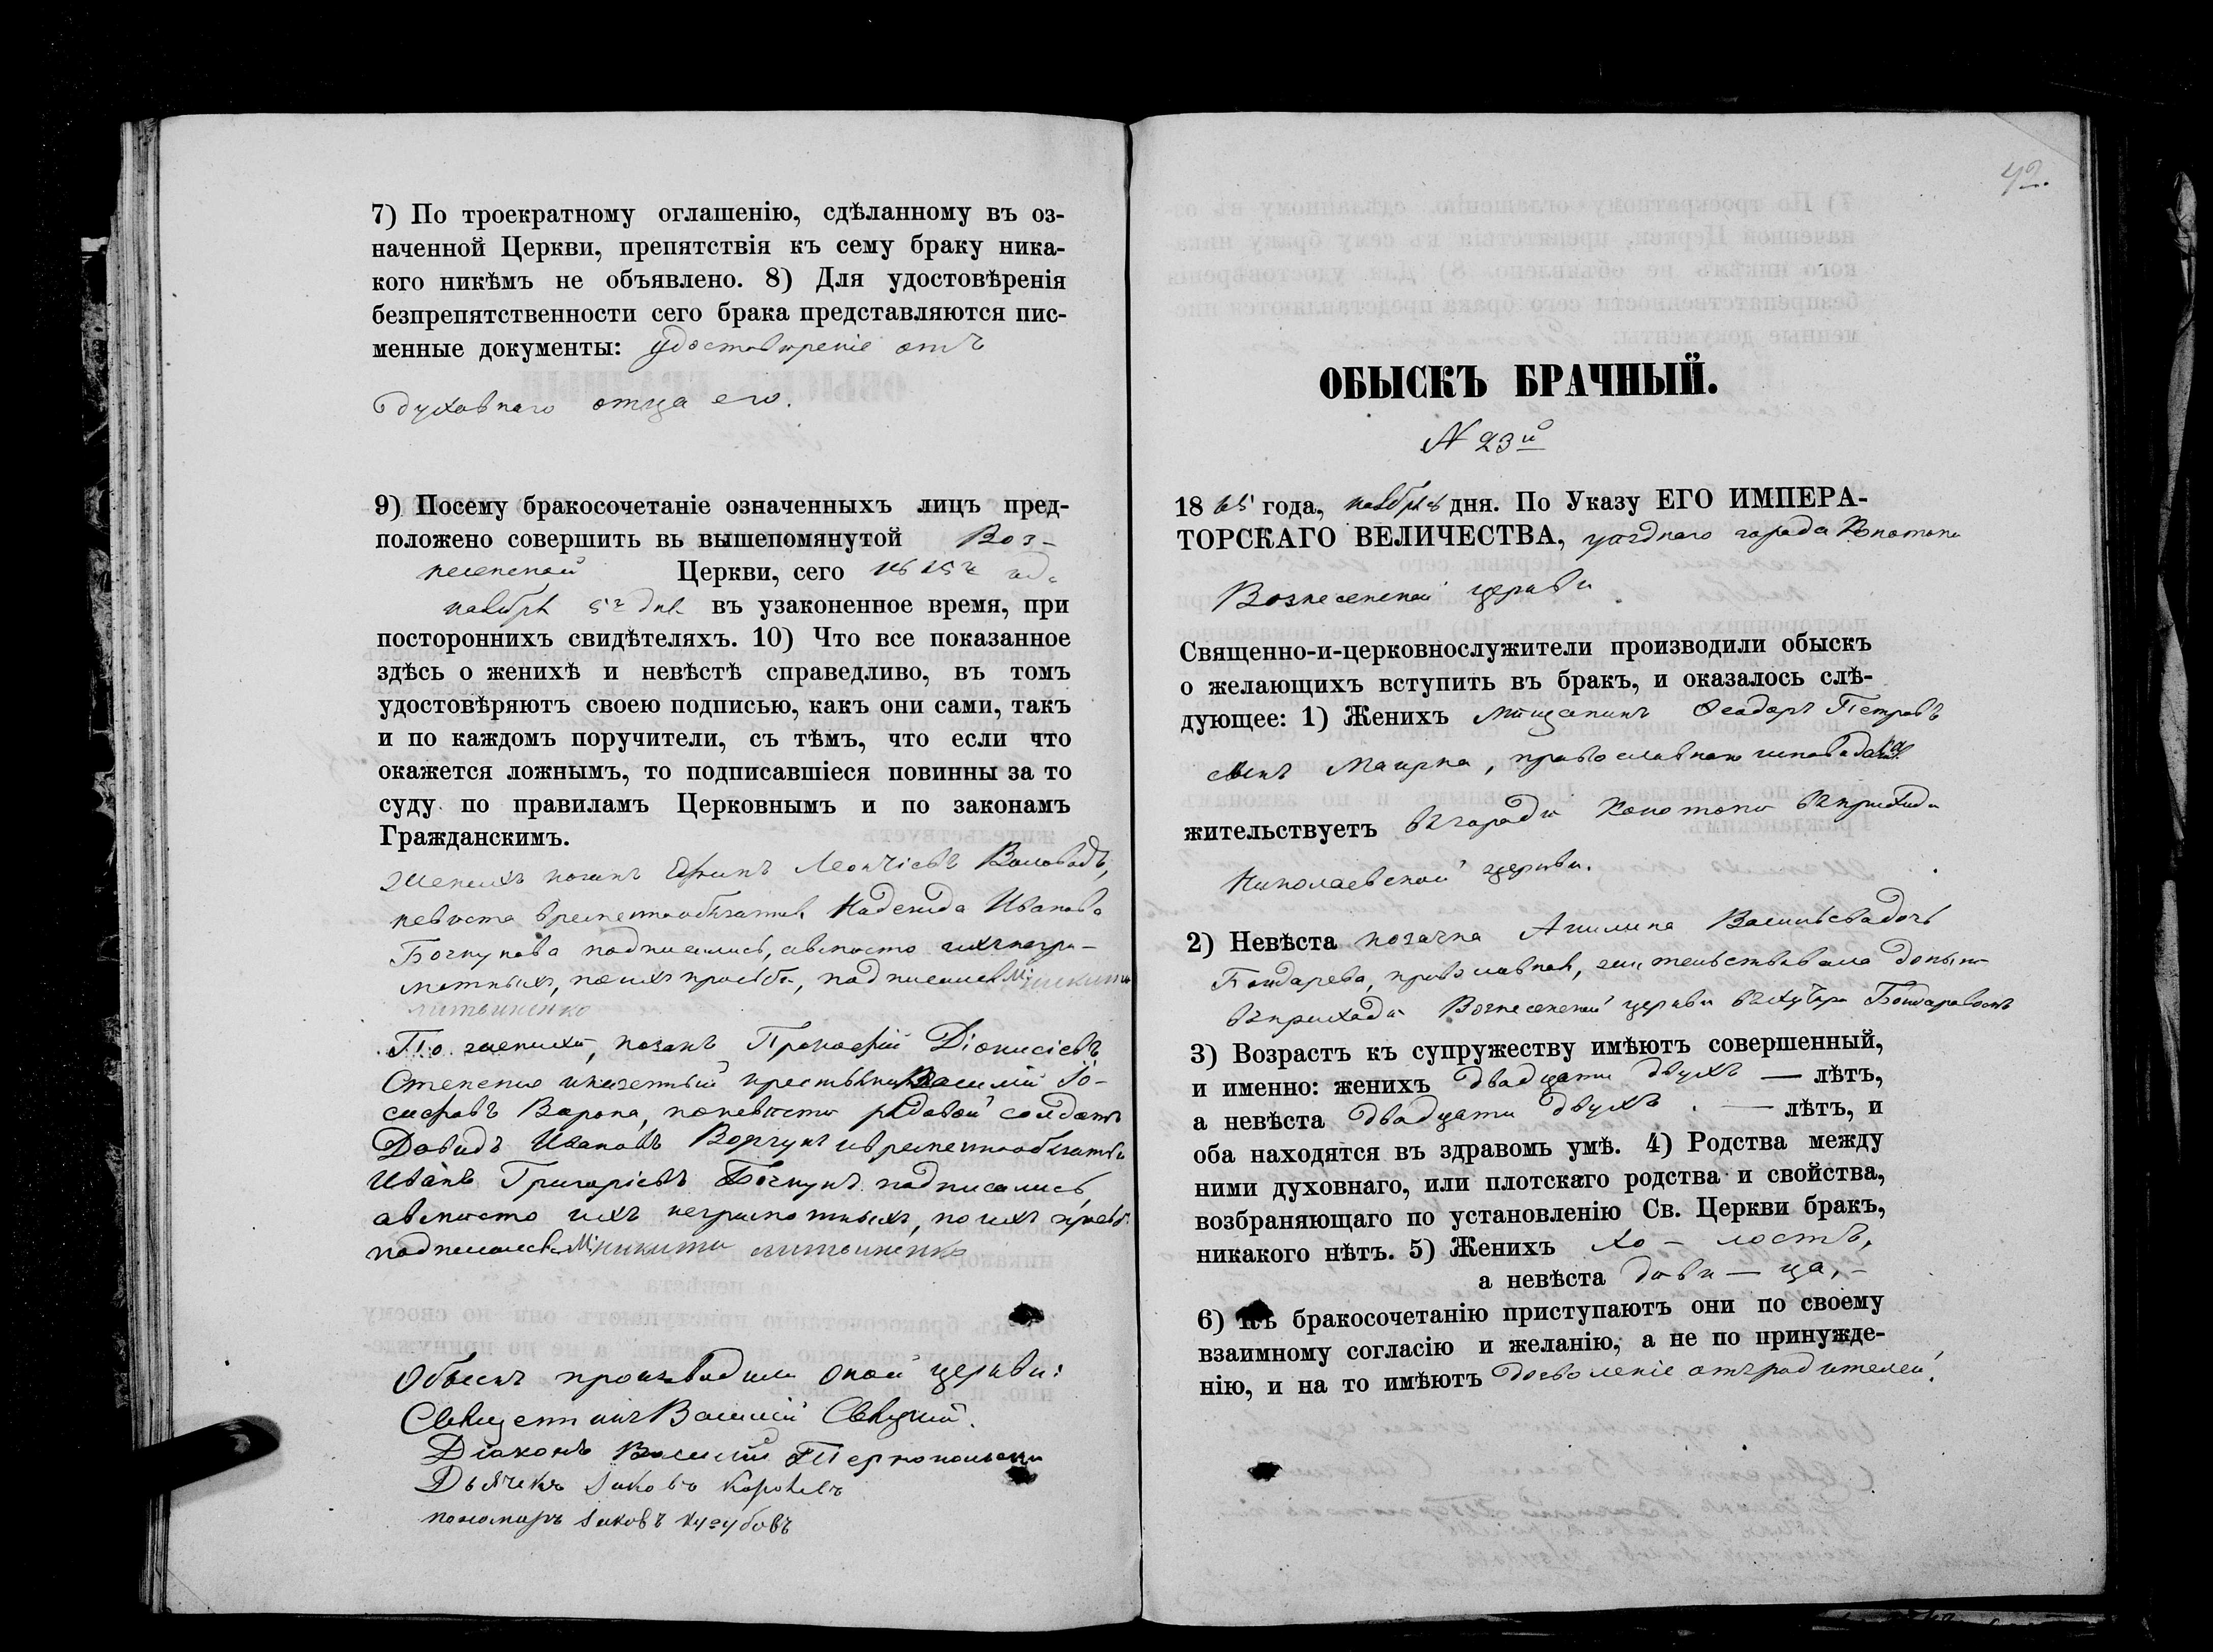 7) По троекратному оглашенію, сдѣланному въ оз-
наченной Церкви, препятствія къ сему браку ника-
кого никѣмъ не объявлено. 8) Для удостовѣренія
безпрепятственности сего брака представляются пис-
менные документы: удостовѣреніе отъ
духовнаго отца его.
9) Посему бракосочетаніе означенныхъ лицъ пред-
положено совершить вь вышепомянутой Воз-
несенской Церкви, сего
ноября 5г дня въ узаконенное время, при
постороннихъ свидѣтеляхъ. 10) Что все показанное
здѣсь о женихѣ и невѣстѣ справедливо, въ томъ
удостовѣряютъ своею подписью, какъ они сами, такъ
и по каждомъ поручители, съ тѣмъ, что если что
окажется ложнымъ, то подписавшіеся повинны за то
суду по правиламъ Церковнымъ и по законамъ
Гражданскимъ.
Женихъ козакъ Леонтіевъ
невѣста временнообязанная Надежда Иванова
Бочкунова подписались, авмѣсто ихъ негра-
мотныхъ, по ихъ просьбѣ, подписался Никита
литвиненко
По женихѣ, козакъ Прокофій Діонисіевъ
Степенко и казенный крестьянинъ Василій Іо-
сифовъ Ворона, по невѣстѣ рядовой солдатъ
Давидъ Ивановъ и временнообязанный
Иванъ Григоріевъ Бочкунъ подписались,
авмѣсто ихъ неграмотныхъ, по ихъ просьбѣ
подписался Никита литвиненко
Обыскъ производили оной церкви:
Священникъ Василій Свѣцкій.
Діаконъ Василій Тернопольскій
Дьячекъ Іаковъ
пономарь Іаковъ Кугубовъ
42.
ОБЫСКЪ БРАЧНЫЙ.
N 23й
18 65 года, ноября дня. По Указу ЕГО ИМПЕРА-
ТОРСКАГО ВЕЛИЧЕСТВА, уѣзднаго города Конотопа
Вознесенской церкви
Священно-и-церковнослужители производили обыскъ
о желающихъ вступить въ бракъ, и оказалось слѣ-
дующее: 1) Женихъ мѣщанинъ Феодоръ Петровъ
сынъ православнаго исповѣданія
жительствуетъ въ городѣ Конотопѣ въ приходѣ
Николаевской церкви.
2) Невѣста козачка Акилина Васильева дочь
Бондарева, православная, жительствовала донынѣ
въ приходѣ Вознесенской церкви въ хуторѣ Бондаревомъ
3) Возрастъ къ супружеству имѣютъ совершенный,
и именно: женихъ двадцати двухъ — лѣтъ,
а невѣста двадцати двухъ. — лѣтъ, и
оба находятся въ здравомь умѣ. 4) Родства между
ними духовнаго, или плотскаго родства и свойства,
возбраняющаго по установленію Св. Церкви бракъ,
никакого нѣтъ. 5) Женихъ хо — лостъ,
а невѣста дѣви — ца, —
6) Къ бракосочетанію приступаютъ они по своему
взаимному согласію и желанію, а не по принужде-
нію, и на то имѣютъ дозволеніе отъ родителей.